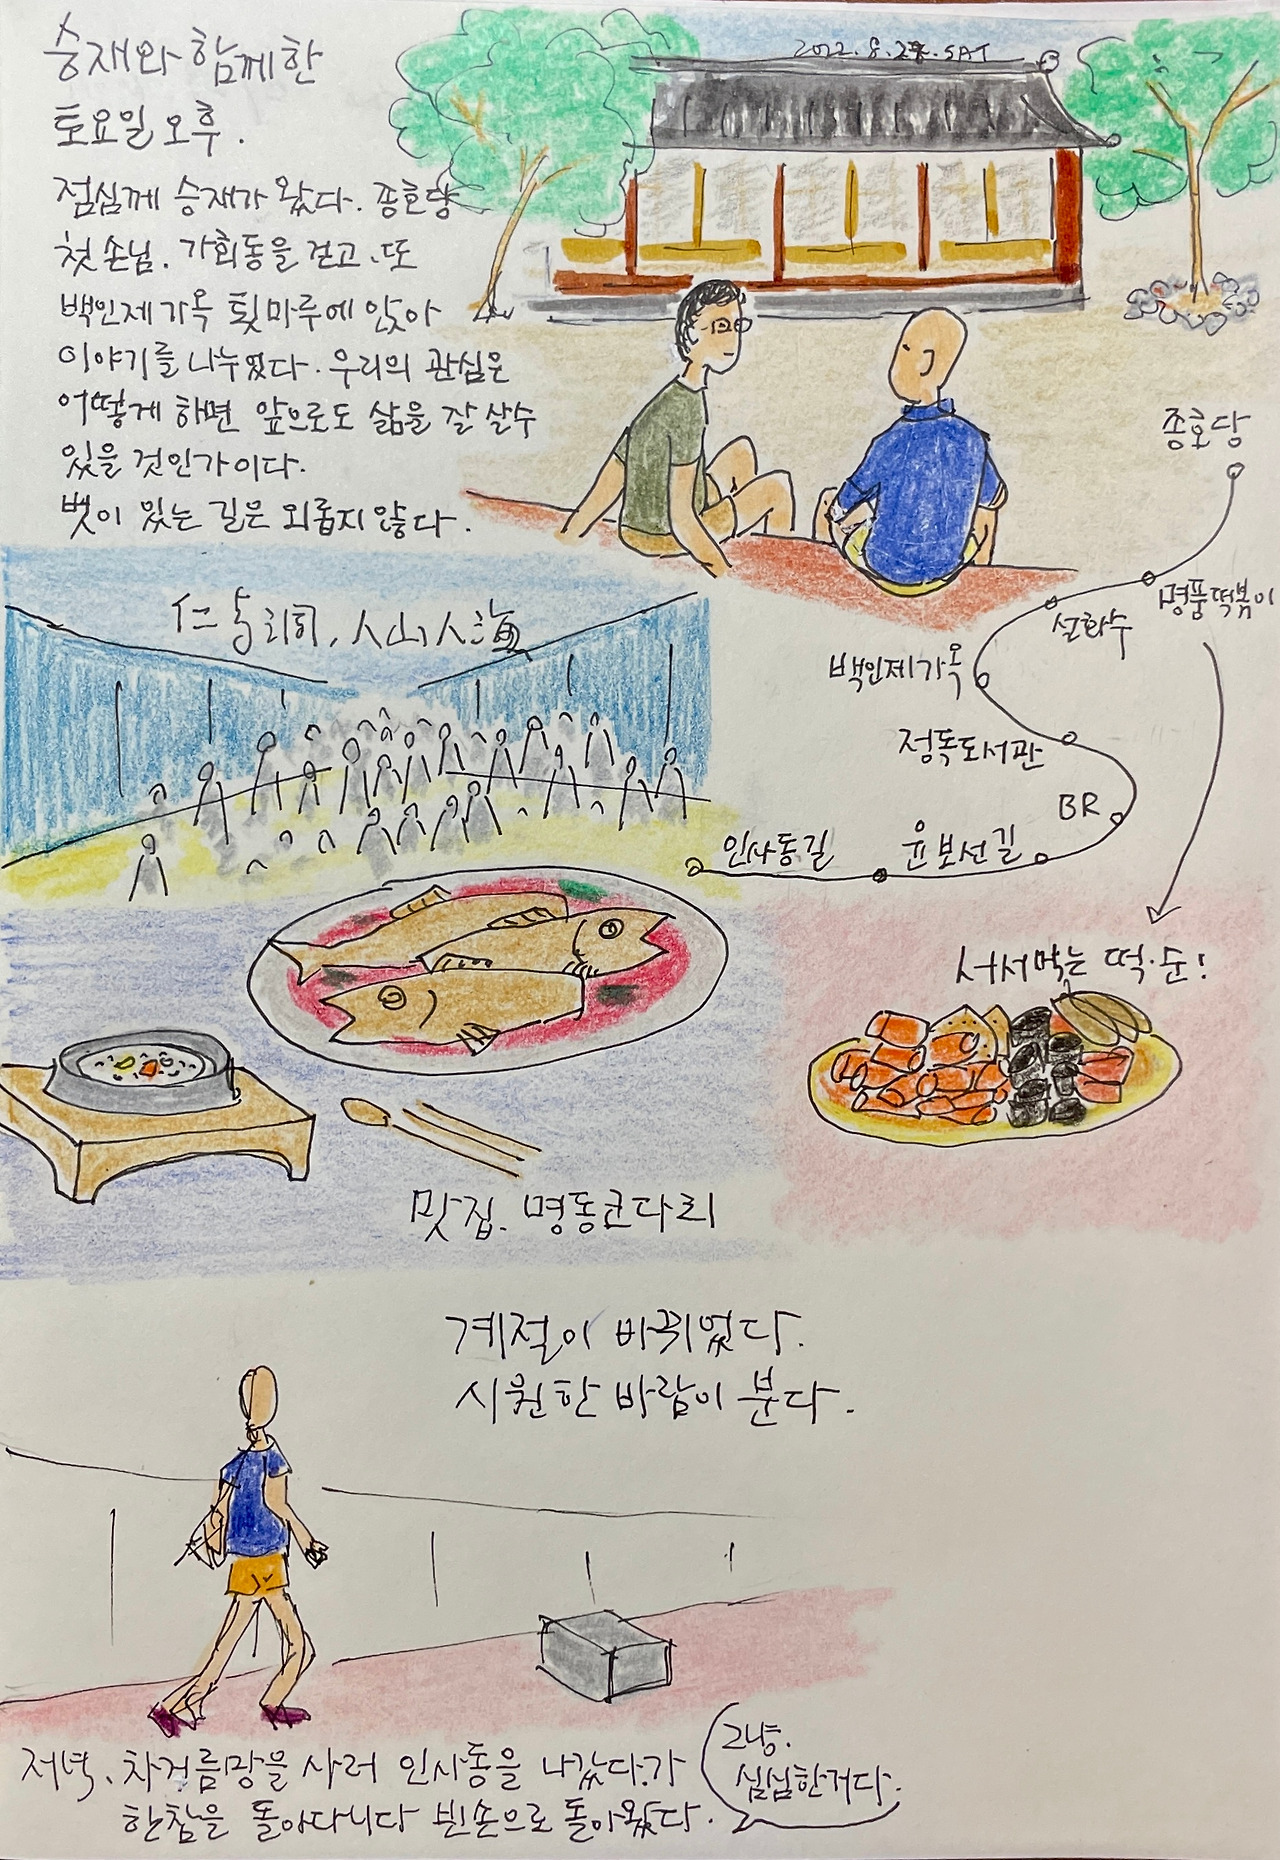 승재와 함께한
토요일 오후.
2022. 8. 27. SAT
점심께 승재가 왔다. 종호당
첫 손님. 가회동을 걷고, 또
백인제가옥 툇마루에 앉아
이야기를 나누었다. 우리의 관심은
어떻게 하면 앞으로도 삶을 잘 살 수
있을 것인가이다.
벗이 있는 길은 외롭지 않다.
종호당
명품떡볶이
설화수
백인제가옥
정독도서관
BR
윤보선길
인사동길
人山人海
서서먹는 떡·순!
맛집. 명동코다리
계절이 바뀌었다.
시원한 바람이 분다.
저녁, 차거름망을 사러 인사동을 나갔다가
한참을 돌아다니다 빈손으로 돌아왔다.
그냥.
심심한거다.